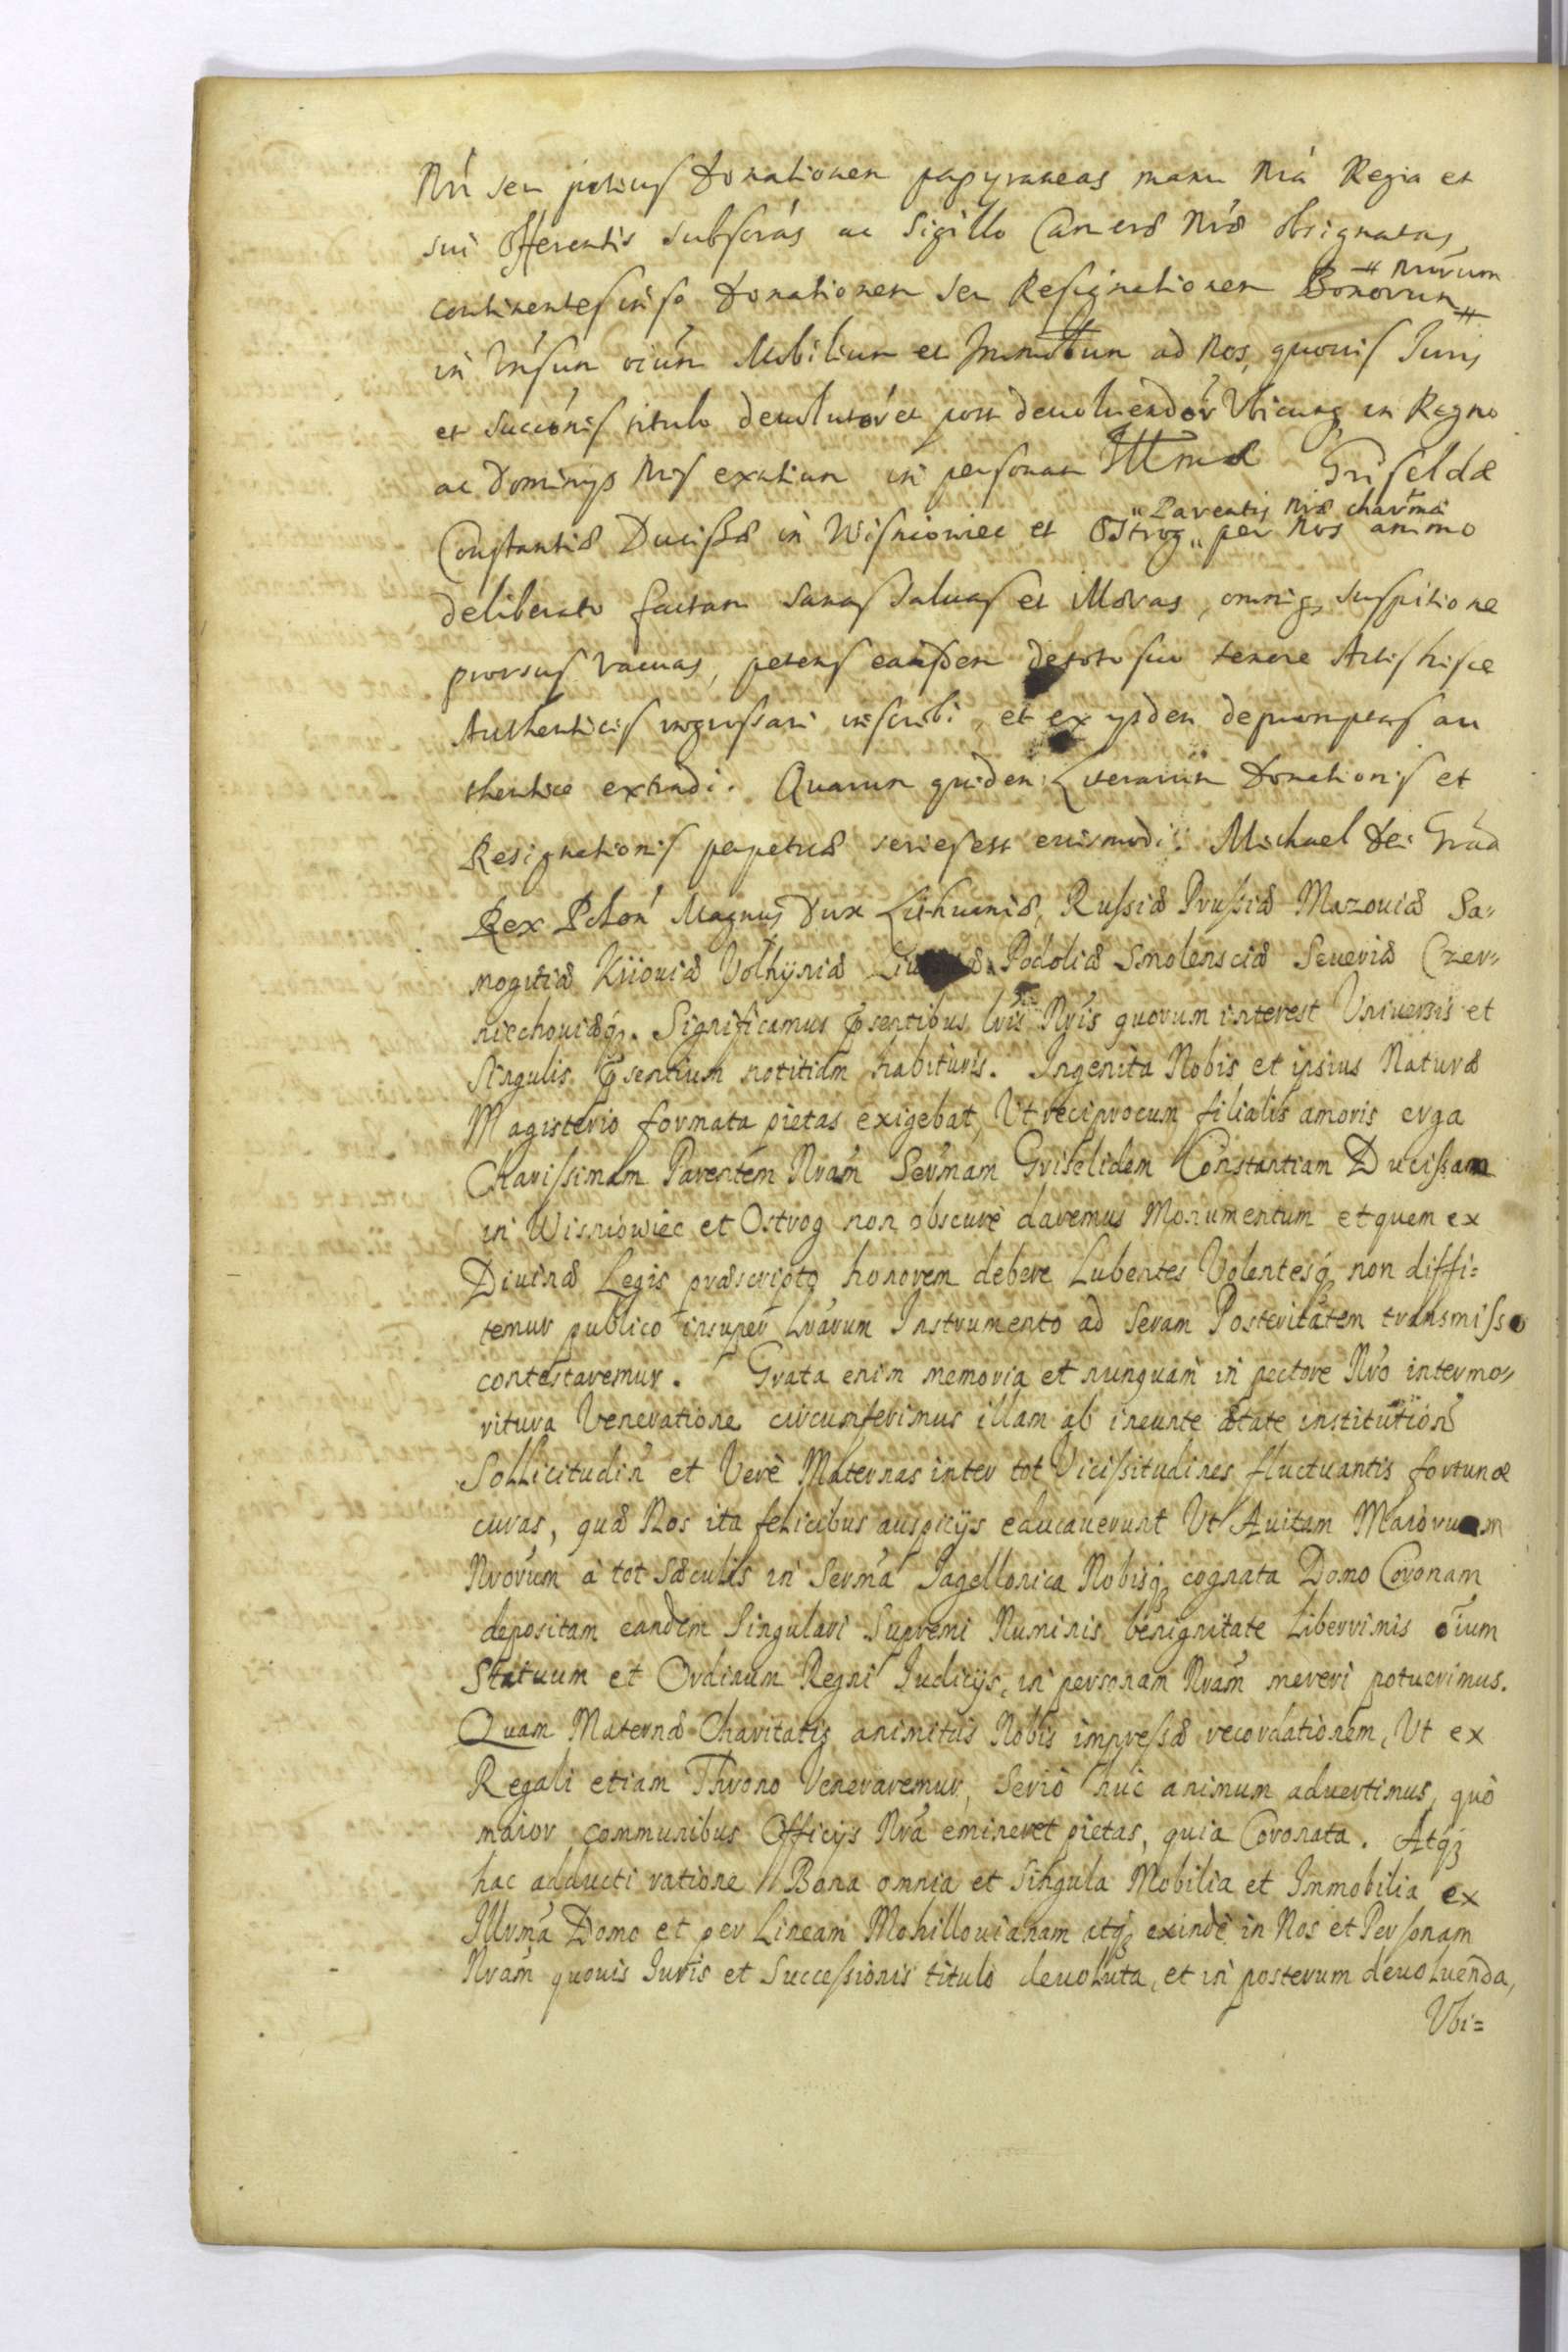 Nri seu potius Donationem papyraneas manu Nrá Regia et
sui Offerentis subscrás ac Sigillo Cancræ Nræ obsignatas,
continentes in se Donationem seu Resignationem Bonorum # Nrorum #
in Vnsum oium Mobilium et Immobilium ad Nos, quovis Juris
et succiónis titulo devolutor et post devoluendor Vbicunq in Regno
ac Dominys Nris exutium in personam Illrmæ Griseldæ
Constantiæ Ducissæ in Wisniowiec et Ostrog „ Parentis Nræ charmæ „ per Nos animo
deliberato factam sanas salvas et illæsas, omniq suspitione
prorsus vacuas, petens easdem de toto suo tenore Actis hisce
Authenticis ingrossari inscribi, et ex ysdem depromptas au
thentice extradi. Quarum quidem Literarum Donationis et
Resignationis perpetuæ series est eiusmodi. Michael Dei Gráa
Rex Polon Magnus Dux Lithuaniæ, Russiæ Prussiæ Mazouiæ Sa„
mogitiæ Kiiouiæ Volhyniæ Podoliæ Smolensciæ Seueriæ Czer„
niechouiæq. Significamus pñsentibus lrís Nrís quorum interest Vniuersis et
Singulis pñsentium notitiam habituris. Ingenita Nobis et ipsius Naturæ
Magisterio formata pietas exigebat, Vt reciprocum filialis amoris erga
Charissimam Parentem Nram Sermam Griselidem Constantiam Ducissam
in Wisniowiec et Ostrog non obscurè daremus Monumentum et quem ex
Diuinæ Legis præscripto honorem debere Lubentes Volentesq non diffi=
temur publico insuper lrarum Instrumento ad seram Posteritatem transmisso
contestaremur. Grata enim memoria et nunquam in pectore Nro intermo„
ritura Veneratione circumferimus illam ab ineunte ætate institution
Sollicitudin et Verè Maternas inter tot Vicissitudines fluctuantis fortunæ
curas, quæ Nos ita felicibus auspicijs educauerunt Vt Auitam Maiorum
Nrorum à tot sæculis in Serma Jagellonica Nobisq cognata Domo Coronam
depositam eandem Singulari Supremi Numinis benignitate liberrimis oium
Statuum et Ordinum Regni Iudicijs, in personam Nram mereri potuerimus.
Quam Maternæ Charitatis animitus Nobis impressæ recordationem, Vt ex
Regali etiam Throno Veneraremur, seriò huc animum aduertimus, quò
maior communibus Officijs Nra emineret pietas, quia Coronata. Atq
hac adducti ratione Bona omnia et singula Mobilia et Immobilia ex
Illrma Domo et per Lineam Mohillouianam atq exindè in Nos et Personam
Nram quouis Iuris et Successionis titulo deuoluta, et in posterum deuoluenda,
Vbi=